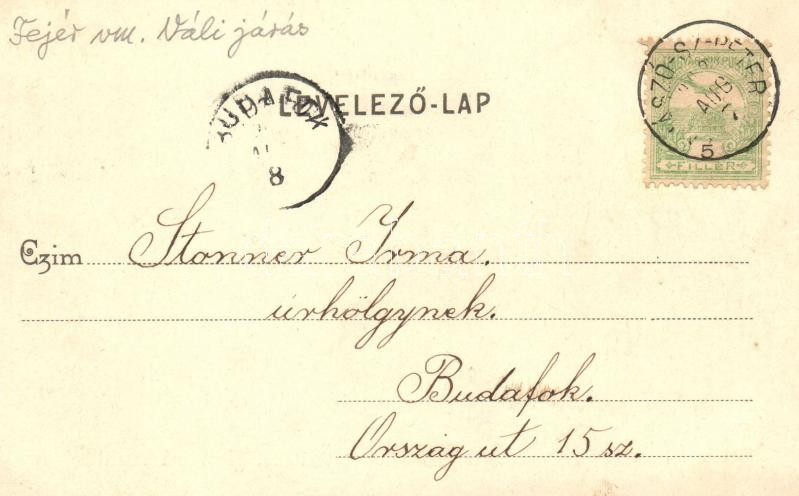 Fejér vm. Váli járás
LEVELEZŐ-LAP
BUDAFOK
8
5
FILLÉR
AUG
Czim Stonner Irma.
úrhölgynek.
Budafok.
Országut 15 sz.